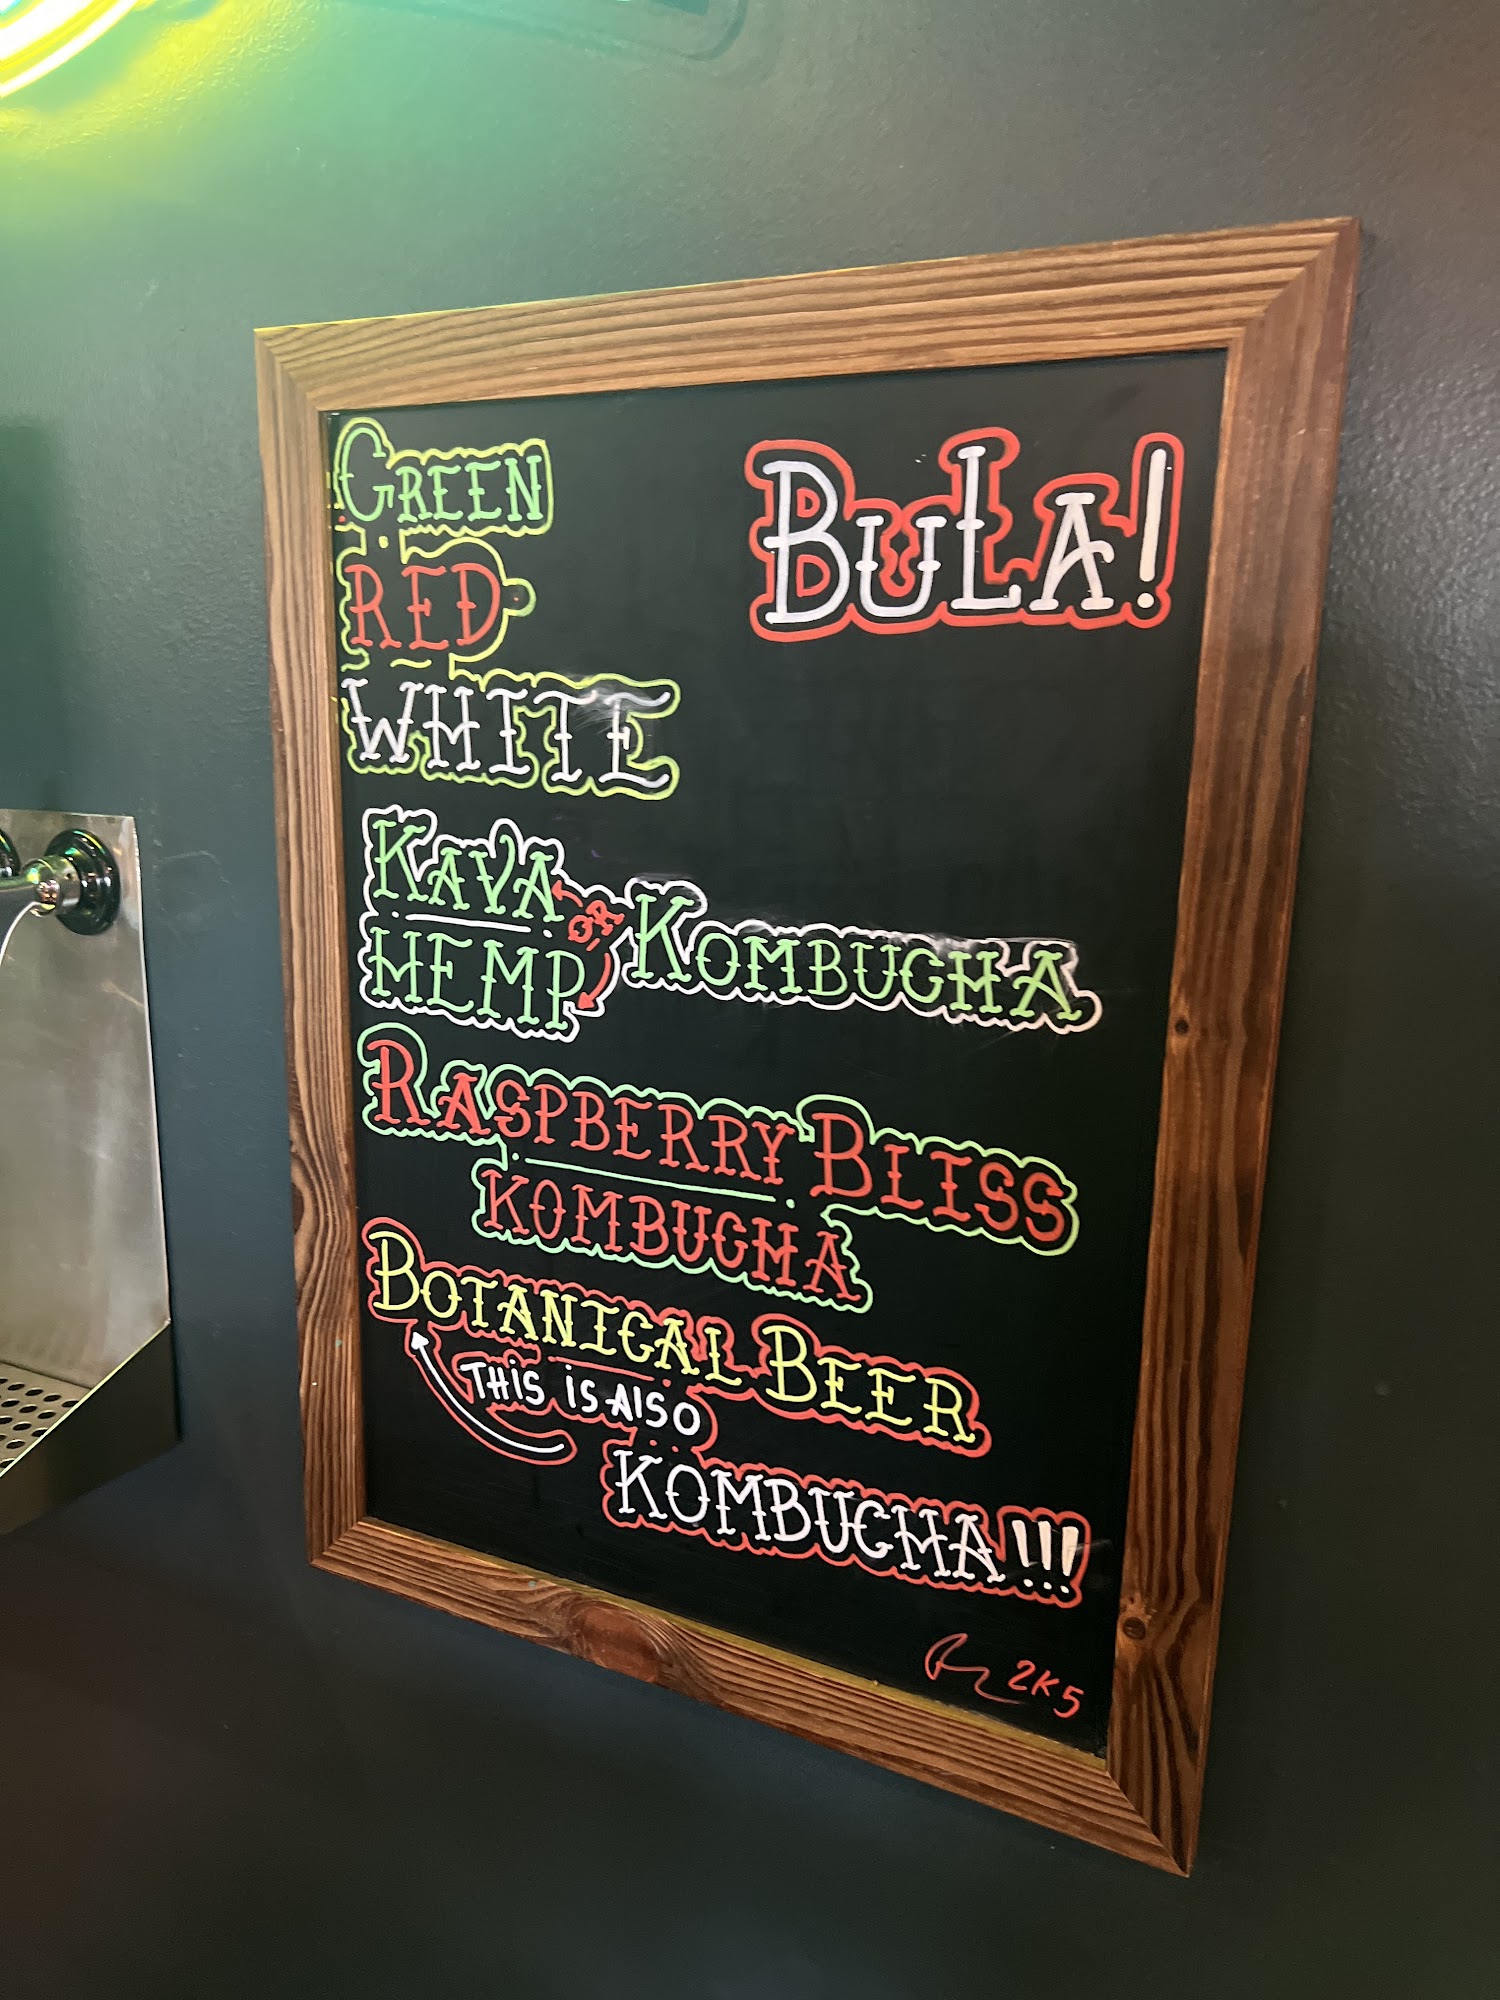 GREEN
BULA!
RED
WHITE
KAVA
OR KOMBUCHA
HEMP
RASPBERRY BLISS
KOMBUCHA
BOTANICAL BEER
THIS IS AlSO
KOMBUCHA!!!
2K5